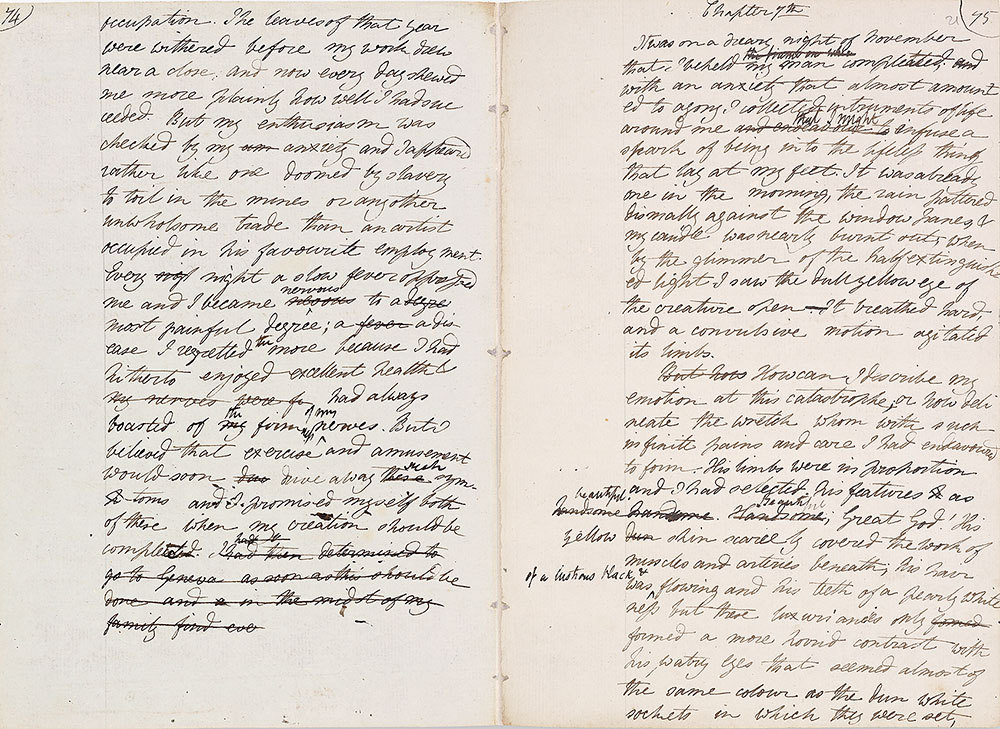 74)
occupation. The leaves of that year
were withered before my work drew
near a close. and now every day shewed
me more plainly how well I had suc
ceeded. But my enthusiasm was
checked by my anxiety and I appeared
rather like one doomed by slavery
to toil in the mines or any other
unwholsome trade than an artist
occupied in his favourite employment.
Every night a slow fever oppressed
nervous
me and I became to a degre
most painful degree; a fever a dis
ease I regretted the more because I had
hitherto enjoyed excellent health &
my nerves were fi had always
the of my
boasted of my firm nerves. But I
believed that exercise and amusement
such
would soon drive away these sym-
toms and I promised myself both
of these when my creation should be
compleated. I had then determined to
go to Geneva as soon as this should be
done and in the midst of my
family find
Chapter 7th
(75
21
It was on a dreary night of November
the frame on whic
that I beheld my man compleated; and
with an anxiety that almost amount
ed to agony, I collected instruments of life
that I might
around me to infuse a
spark of being into the lifeless thing
that lay at my feet. It was already
one in the morning, the rain pattered
dismally against the window panes, &
my candle was nearly burnt out, when
by the glimmer of the half extinguish
ed light I saw the dull yellow eye of
the creature open — It breathed hard,
and a convulsive motion agitated
its limbs.
But how How can I describe my
emotion at this catastrophe; or how deli
neate the wretch whom with such
infinite pains and care I had endeavoured
to form. His limbs were in proportion
and I had selected his features as
beautiful
Beautiful
handsome handsome. Handsome; Great God! His
yellow dun skin scarcely covered the work of
muscles and arteries beneath; his hair
of a lustrous black &
was flowing and his teeth of a pearly white
ness but these luxuriancies only formed
formed a more horrid contrast with
his watry eyes that seemed almost of
the same colour as the dun white
sockets in which they were set,